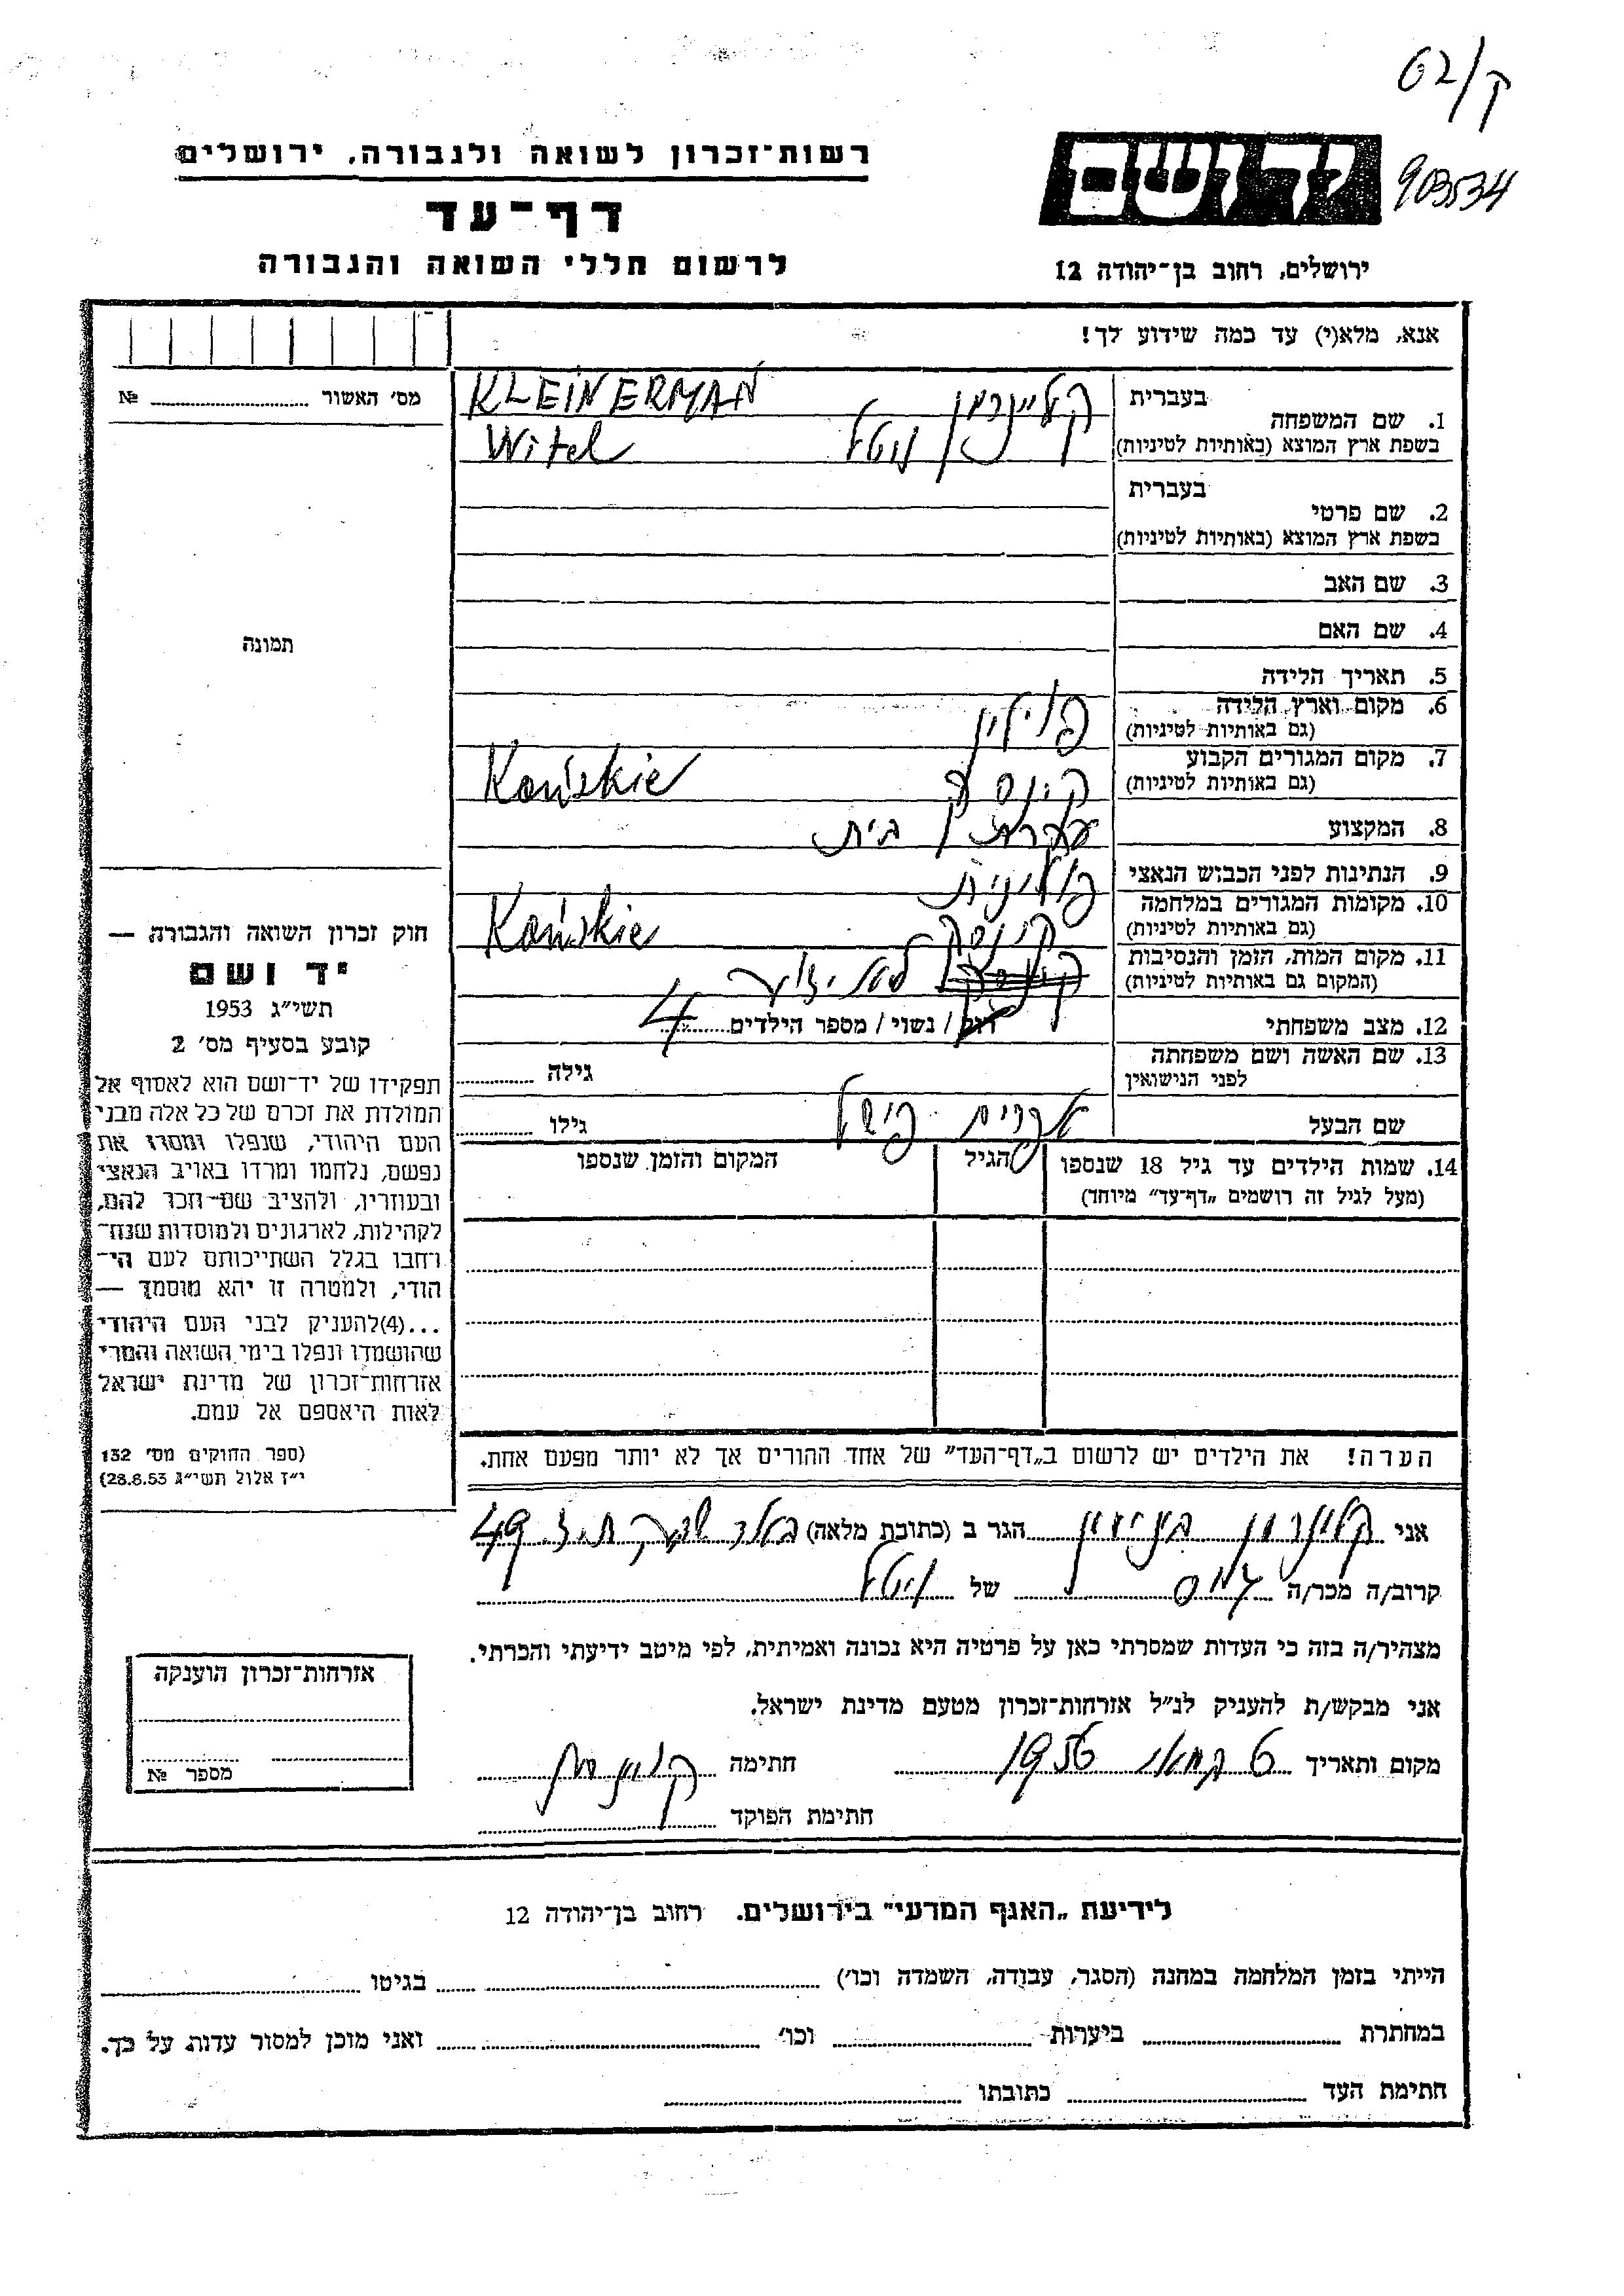 ק/62
903534
יד ושם
ירושלים, רחוב בן־יהודה 12
רשות־זכרון לשואה ולגבורה, ירושלים
דף־עד
לרשום חללי השואה והגבורה
אנא, מלא(י) עד כמה שידוע לך!
1. שם המשפחה בעברית קליינרמן KLEINERMAN
בשפת ארץ המוצא (באותיות לטיניות) וויטל Witel
2. שם פרטי בעברית
בשפת ארץ המוצא (באותיות לטיניות)
3. שם האב
4. שם האם
5. תאריך הלידה
6. מקום וארץ הלידה פוילין
(גם באותיות לטיניות)
7. מקום המגורים הקבוע Końskie
(גם באותיות לטיניות)
8. המקצוע עקרת בית
9. הנתינות לפני הכבוש הנאצי פולנית
10. מקומות המגורים במלחמה Końskie
(גם באותיות לטיניות)
11. מקום המות, הזמן והנסיבות
(המקום גם באותיות לטיניות)
12. מצב משפחתי רווק / נשוי / מספר הילדים 4
13. שם האשה ושם משפחתה גילה
לפני הנישואין
שם הבעל גילו
14. שמות הילדים עד גיל 18 שנספו הגיל המקום והזמן שנספו
(מעל לגיל זה רושמים „דף־עד” מיוחד)
הערה! את הילדים יש לרשום ב„דף־העד” של אחד ההורים אך לא יותר מפעם אחת.
מס' האשור №
תמונה
חוק זכרון השואה והגבורה —
יד ושם
תשי״ג 1953
קובע בסעיף מס' 2
תפקידו של יד־ושם הוא לאסוף אל
המולדת את זכרם של כל אלה מבני
העם היהודי, שנפלו ומסרו את
נפשם, נלחמו ומרדו באויב הנאצי
ובעוזריו, ולהציב שם־וזכר להם,
לקהילות, לארגונים ולמוסדות שנח־
רחבו בגלל השתייכותם לעם הי־
הודי, ולמטרה זו יהא מוסמך —
...(4)להעניק לבני העם היהודי
שהושמדו ונפלו בימי השואה והמרי
אזרחות־זכרון של מדינת ישראל
לאות היאספם אל עמם.
(ספר החוקים מס' 132
י״ז אלול תשי״ג 28.8.53)
אני קליינרמן הגר ב (כתובת מלאה) ת.ד. 49
קרוב/ה מכר/ה של וויטל
מצהיר/ה בזה כי העדות שמסרתי כאן על פרטיה היא נכונה ואמיתית, לפי מיטב ידיעתי והכרתי.
אני מבקש/ת להעניק לנ״ל אזרחות־זכרון מטעם מדינת ישראל.
מקום ותאריך 6 במאי 1956 חתימה
חתימת הפוקד
אזרחות־זכרון הוענקה
מספר №
לידיעת „האגף המדעי” בירושלים. רחוב בן־יהודה 12
הייתי בזמן המלחמה במחנה (הסגר, עבודה, השמדה וכו') בגיטו
במחתרת ביערות וכו' ואני מוכן למסור עדות על כך.
חתימת העד כתובתו